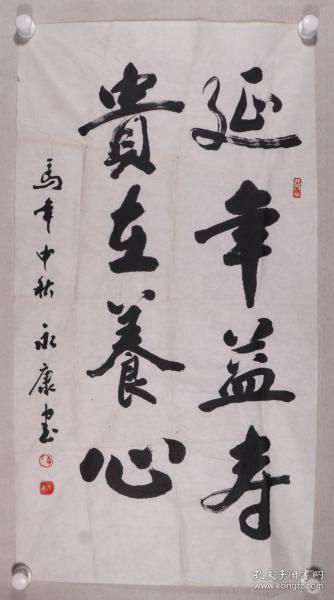 延年益寿
貴在養心
馬年中秋 永康書
孔夫子旧书网